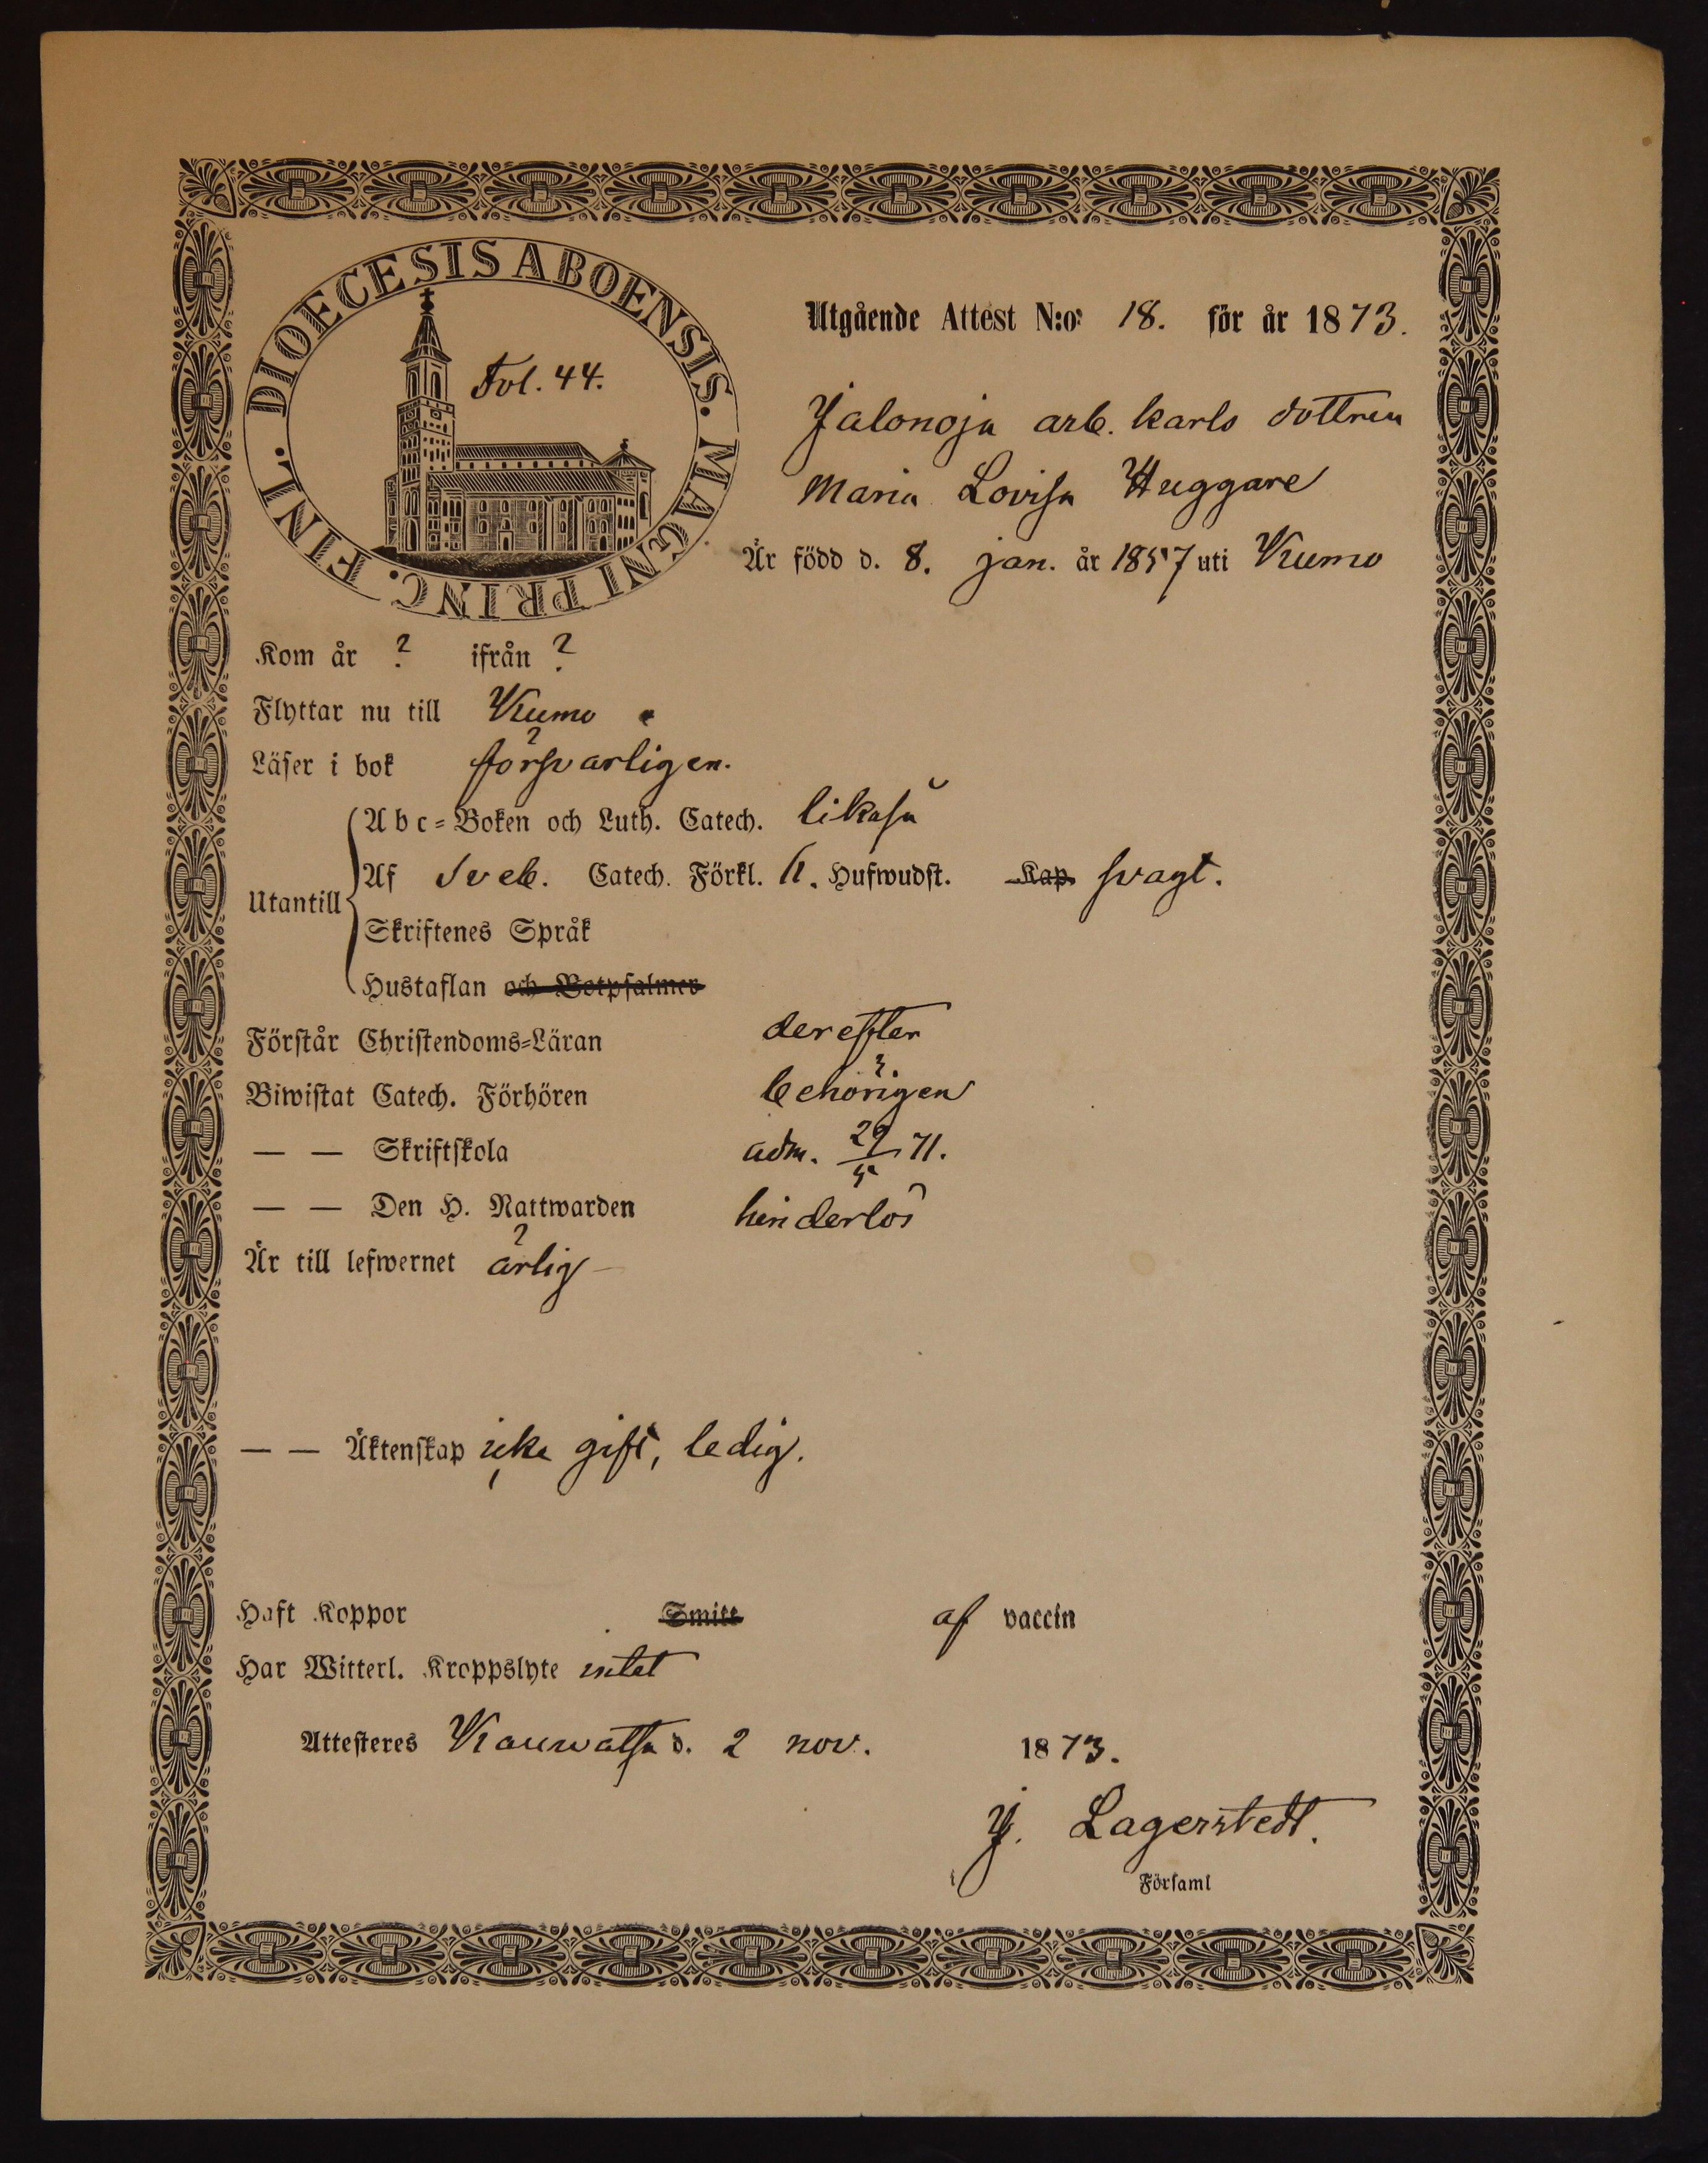 DIOECESIS ABOENSIS. MAGNI PRINC. FINL.
Fol. 44.
Utgående Attest N:o: 18. för år 1873.
Jalonoja arb. karls dottren
Maria Lovisa Huggare
Är född d. 8. jan. år 1857 uti Kumo
Kom år ? ifrån ?
Flyttar nu till Kumo
Läser i bok försvarligen.
Utantill
Abc-Boken och Luth. Catech. likaså
Af Sveb. Catech. Förkl. h. Hufwudst. Kap. svagt.
Skriftenes Språk
Hustaflan och Botpsalmer
Förstår Christendoms-Läran derefter
Biwistat Catech. Förhören behörigen
— — Skriftskola adm. 29/5 71.
— — Den H. Nattwarden hinderlös
Är till lefwernet ärlig
— — Äktenskap icke gift, ledig.
Haft Koppor Smitt af vaccin
Har Witterl. Kroppslyte intet
Attesteres Kauwatsa d. 2 nov. 1873.
J. Lagerstedt.
Församl